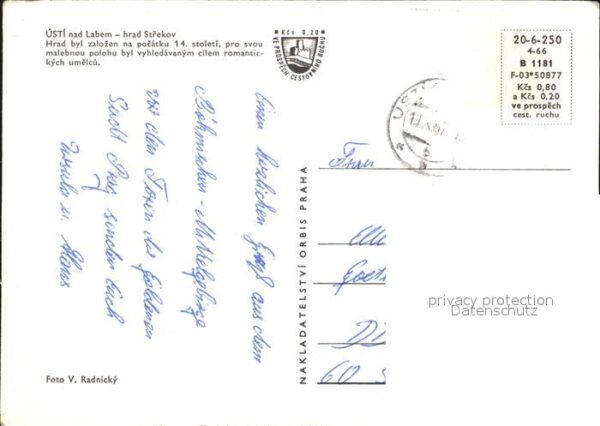 ÚSTÍ nad Labem – hrad Střekov
Hrad byl založen na počátku 14. století, pro svou
malebnou polohu byl vyhledávaným cílem romantic-
kých umělců.
Kčs 0,20
VE PROSPĚCH CESTOVNÍHO RUCHU
20-6-250
4-66
B 1181
F-03*50877
Kčs 0,80
a Kčs 0,20
ve prospěch
cest. ruchu
Einen herzlichen Gruß aus dem
Böhmischen-Mittelgebirge
vor den Toren der Goldenen
Stadt Prag senden Euch
Ursula u. Hans
NAKLADATELSTVÍ ORBIS PRAHA
60
privacy protection
Datenschutz
Foto V. Radnický